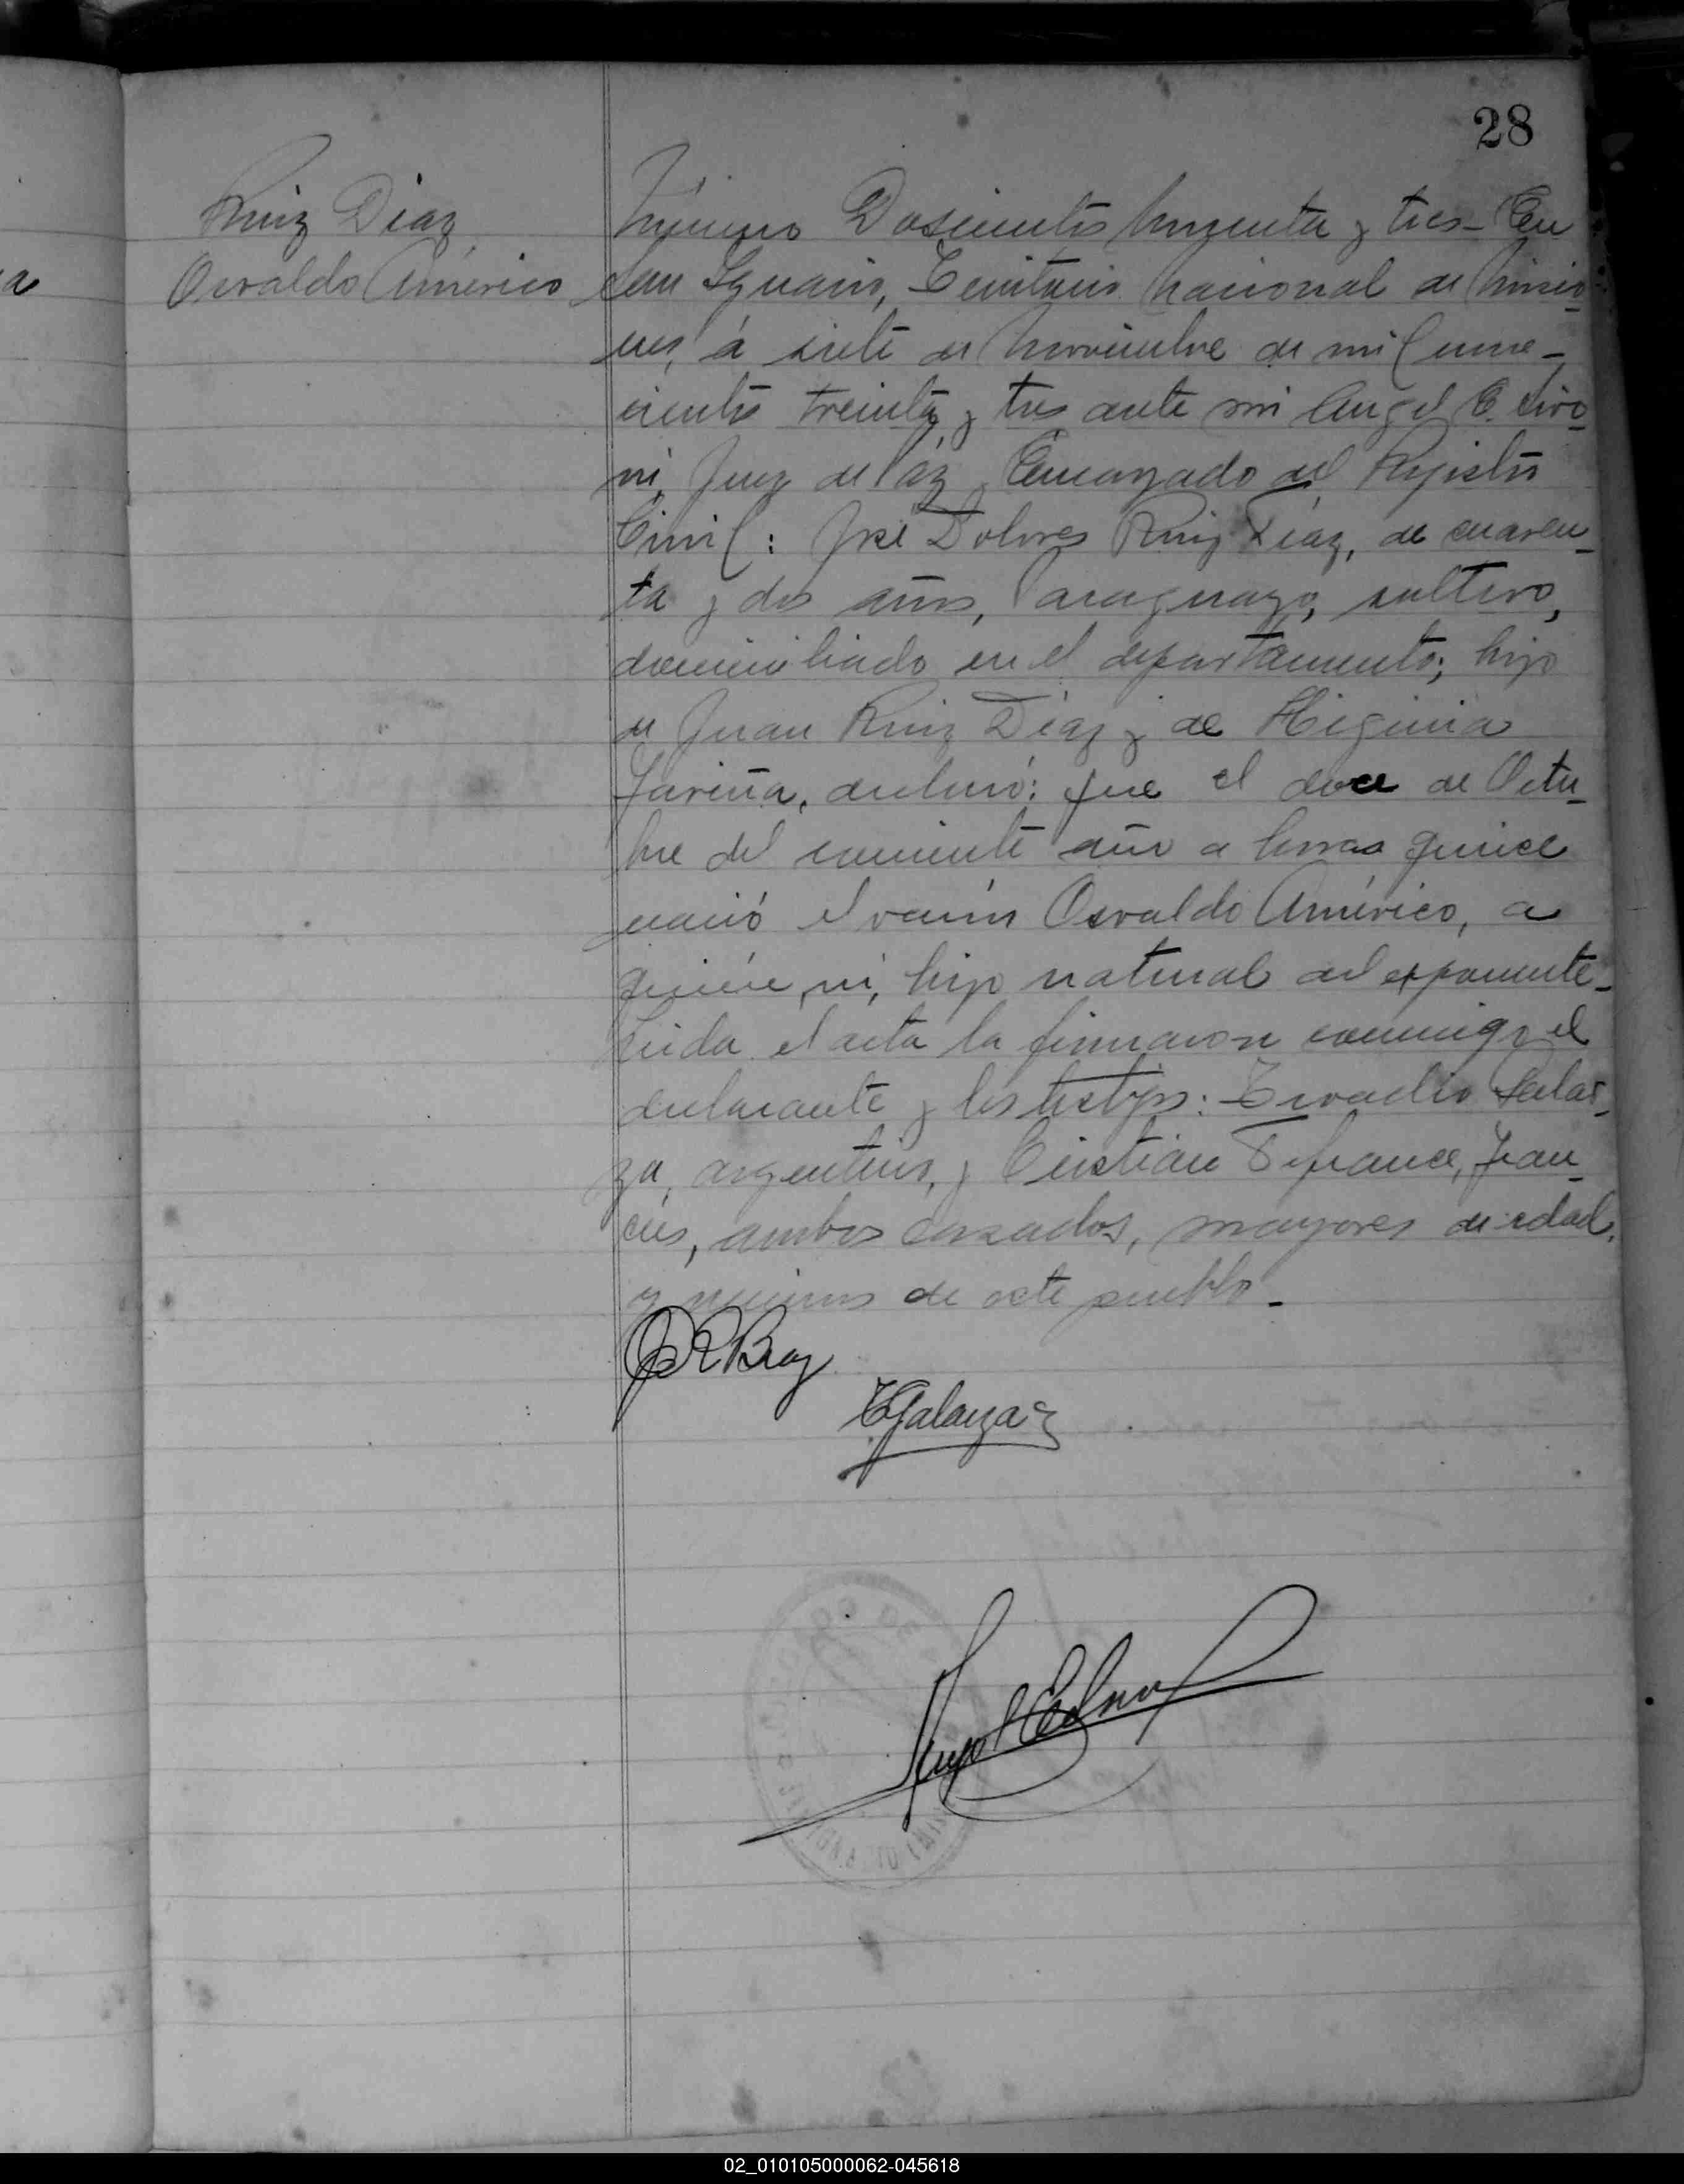 28
Ruiz Diaz
Osvaldo Américo
Número Doscientos Noventa y tres - En
San Ignacio, Territorio Nacional de Misio-
nes, á siete de Noviembre de mil nove-
cientos treinta y tres ante mi Angel E.
ni, Juez de Páz Encargado del Registro
Civil: José Dolores Ruiz Diaz, de cuaren-
ta y dos años, Paraguayo, soltero,
domiciliado en el departamento; hijo
de Juan Ruiz Diaz y de Higinia
Fariña, declaró: que el doce de Octu-
bre del corriente año a horas quince
nació el varón Osvaldo Américo, a
quién ví, hijo natural del exponente-
Leida el acta la firmaron conmigo el
declarante y los testigos: Galar-
za, argentino, y Cristián Defrance, Fran-
cés, ambos casados, mayores de edad,
y vecinos de este pueblo.-
Galarza
Angel E
02_010105000062-045618